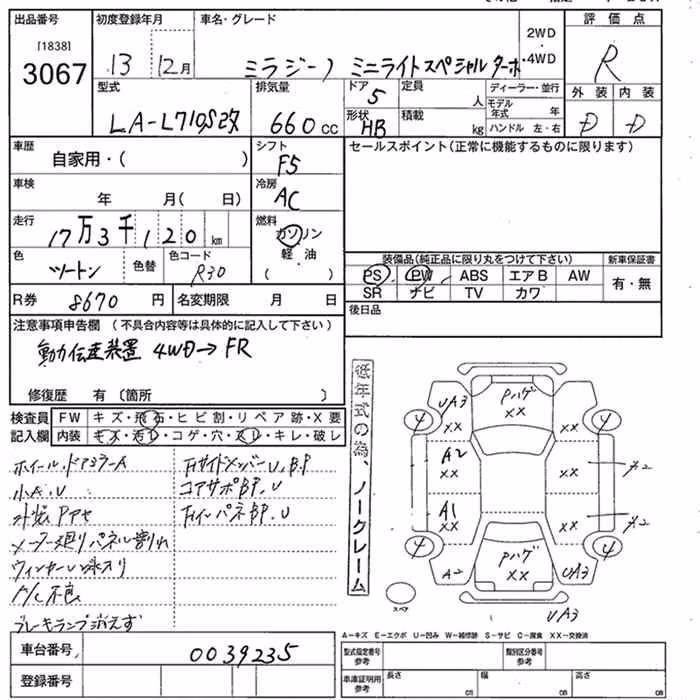 出品番号
[1838]
3067
初度登録年月
13 12月
車名・グレード
ミラジーノ ミニライトスペシャルターボ
2WD
・4WD
評価点
R
型式
LA-L710S改
排気量
660cc
ドア
5
定員
人
ディーラー・並行
モデル年式 年
形状
HB
積載
kg
ハンドル 左・右
外装 内装
D D
車歴
自家用・( )
シフト
F5
セールスポイント(正常に機能するものに限ります)
車検
年 月( 日)
冷房
AC
走行
17万3千120km
燃料
ガソリン
軽油
( )
色
ツートン
色替
色コード
R30
装備品(純正品に限り丸をつけて下さい)
PS PW ABS エアB AW
SR ナビ TV カワ
新車保証書
有・無
R券 8670円
名変期限 月 日
後日品
注意事項申告欄(不具合内容等は具体的に記入して下さい)
動力伝達装置 4WD→FR
修復歴 有(箇所 )
検査員
記入欄
FW キズ・飛石・ヒビ割・リペア跡・X要
内装 キズ・汚れ・コゲ・穴・スレ・キレ・破レ
ホイール、ドアミラーA
小A.U
外装Pアセ
メーター廻りパネル割れ
ウィンカーレンズ水入り
A/C不良
ブレーキランプ消えず
Fサイドメンバー U.B.P
コアサポBP.U
FインパネBP.U
低年式の為、ノークレーム
Pハゲ
XX
UA3
XX
XX
A2
XX
XX
A2
A1
XX
XX
A2
Pハゲ
XX
A2
UA3
UA3
4
4
4
4
スペア
A−キズ E−エクボ U−凹み W−補修跡 S−サビ C−腐食 XX−交換済
車台番号 0039235
登録番号
型式指定番号
参考
類別区分番号
参考
車庫証明用
参考
長さ cm
幅 cm
高さ cm